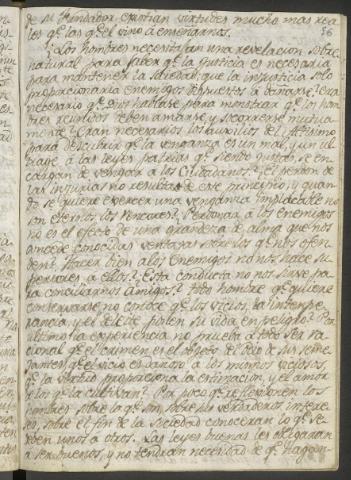 de su Fundador existian virtudes mucho mas rea-
les qe. las qe. el vino a enseñarnos.
56
¿Los hombres necesitaban una revelacion sobre
natural para saber qe. la justicia es necesaria
para mantener la Sociedad, que la injusticia solo
proporcionaria enemigos dispuestos a dañarse? era
necesario qe. Dios hablase para mostrar qe. los hom
bres reunidos deben amarse, y socorrerse mutua
mente? Eran necesarios los auxilios del Altisimo
para descubrir qe. la venganza es un mal, y un ul
trage á las leyes patrias qe. siendo justas, se en
cargan de vengar á los Ciudadanos? El perdon de
las injurias no resulta de este principio, y quan
do se quiere exercer una venganza implacable no
son eternos los rencores? Perdonar á los enemigos
no es el efecto de una grandeza de alma que nos
concede conocidas ventajas sobre los qe. nos ofen
den? Hacer bien a los Enemigos no nos hace su
periores á ellos? Esta conducta no nos sirve pa
ra conciliarnos amigos? todo hombre qe. quiere
conservarse no conoce qe. los vicios, la intempe
rancia, y el deleite ponen su vida en peligro? Por
ultimo la experiencia no prueba á todo ser ra
cional qe. el crimen es el objeto del odio de sus seme
jantes, qe. el vicio es dañoso á los mismos viciosos,
qe. la virtud proporciona la estimacion, y el amor
á los qe. la cultivan? Por poco qe. reflexionen los
hombres sobre lo qe. son, sobre sus verdaderos interes
es, sobre el fin de la Sociedad conoceran lo qe. se
deben unos á otros. Las leyes buenas les obligaran
a ser buenos, y no tendran necesidad de qe. hagan